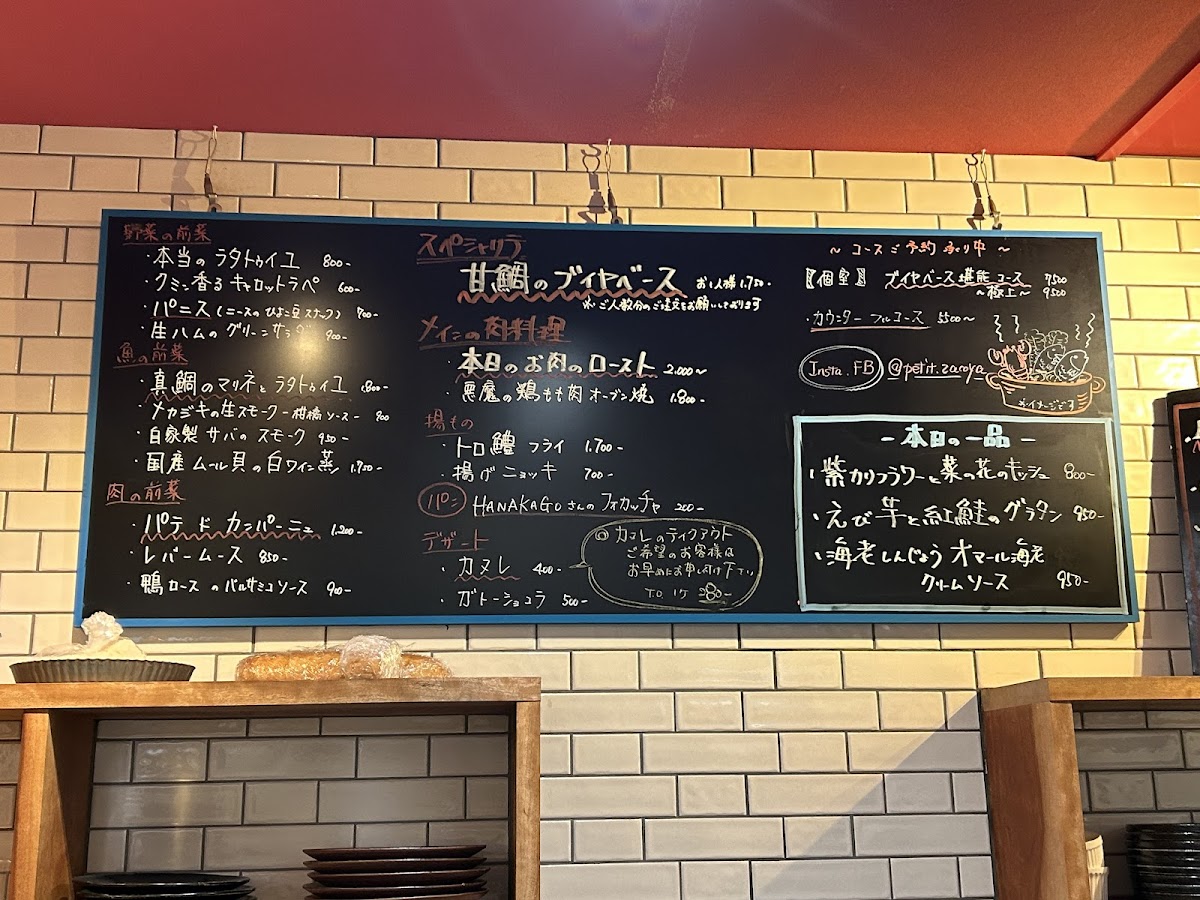 野菜の前菜
・本当の ラタトゥイユ 800-
・クミン香る キャロットラペ 600-
・パニス (ニースのひよこ豆スナック) 700-
・生ハムのグリーンサラダ 900-
魚の前菜
・真鯛のマリネとラタトゥイユ 1.800-
・メカジキの生スモーク -柑橘ソース- 900
・自家製 サバの スモーク 950-
・国産 ムール貝の白ワイン蒸し 1.750-
肉の前菜
・パテ・ド カンパーニュ 1.200-
・レバームース 850-
・鴨ロース のバルサミコソース 900-
スペシャリテ
甘鯛のブイヤベース お1人様 1.750-
※ご人数分のご注文をお願いしております
メインの肉料理
・本日のお肉のロースト 2.000~
・悪魔の鶏もも肉オーブン焼 1.800-
揚もの
・トロ鱧 フライ 1.700-
・揚げニョッキ 700-
パン HANAKAGOさんのフォカッチャ 200-
デザート
・カヌレ 400-
・ガトーショコラ 500-
◎カヌレのテイクアウト
ご希望のお客様は
お早めにお申し付け下さい
TO 1ケ 380-
~ コースご予約承り中 ~
【個室】 ブイヤベース堪能コース 7500
~極上~ 9500
・カウンター フルコース 5500~
Insta.FB @petit.zaroya
※イメージです
-本日の一品-
・紫カリフラワーと菜の花のキッシュ 800-
・えび芋と紅鮭のグラタン 950-
・海老しんじょう オマール海老
クリームソース 950-